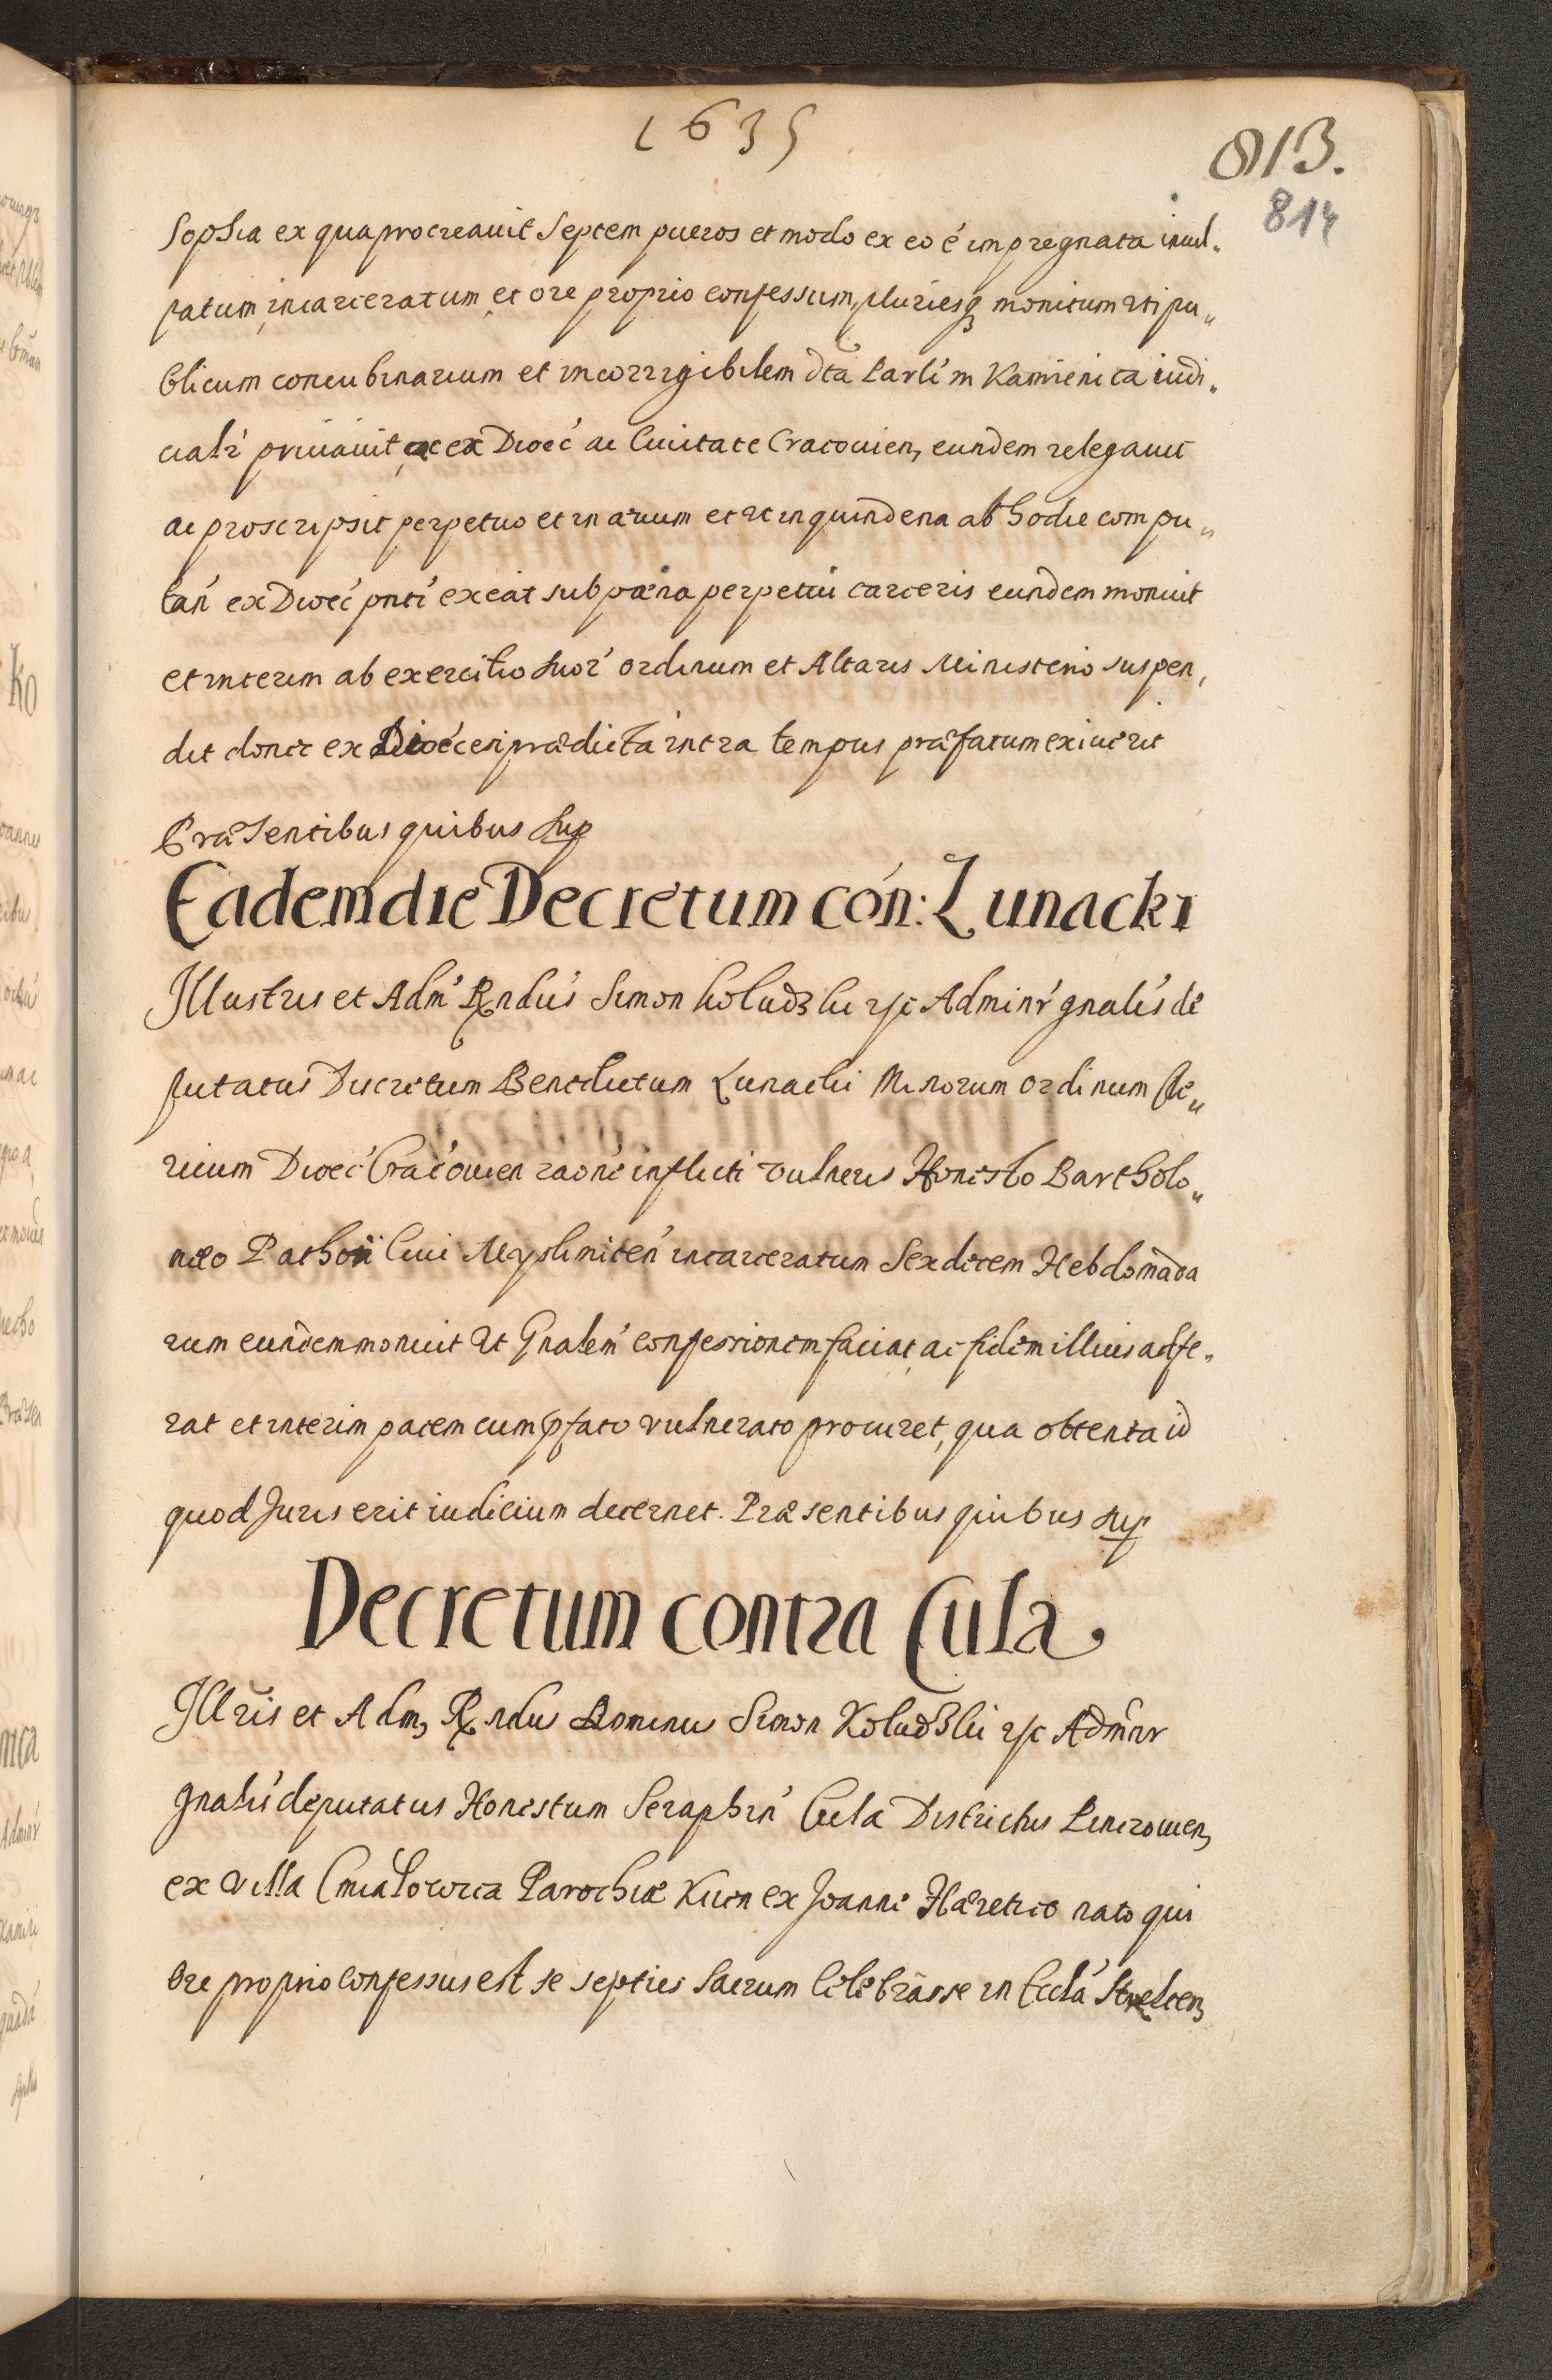 1635
813.
814
Sophia ex qua procreavit Septem pueros et modo ex eo é impregnata incul„
patum, incarceratum, et ore proprio confessum, pluriesq monitum uti pu„
blicum concubinarium et incorrigibilem dta Parli in Kamienica iudi„
cialr privavit ac ex Dioec ac Civitate Cracovien, eundem relegavit
ac proscripsit perpetuo et in ævum et ut in quindena ab hodie compu„
tan ex Dioec pnti exeat sub pæna perpetui carceris eundem monuit
et interim ab exercitio suor ordinum et Altaris Ministerio suspen,
dit donec ex Dioecesi prædicta intra tempus præfatum exiverit
Præsentibus quibus sup
Eadem die Decretum con: Lunacki
Illustris et Adm Rndus Simon Koludzki etc Adminr gnalis de
putatus Discretum Benedictum Lunacki Minorum ordinum Cle„
ricum Dioec Cracovien raone inflicti vulneris Honesto Bartholo„
mæo Pathon Civi Myslimiten incarceratum Sexdecem Hebdomada
rum eundem monuit ut Gnalem confessionem faciat, ac fidem illius adfe„
rat et interim pacem cum pfato vulnerato procuret, qua obtenta id
quod Juris erit iudicium decernet. Præsentibus quibus sup
Decretum contra Cula
Illris et Adm, Rndus Dominus Simon Koludzki etc Adminr
gnalis deputatus Honestum Seraphin Cula Districtus Pinczovien,
ex villa Parochiæ ex Joanne Hæretico nato qui
Ore proprio Confessus est se septies Sacrum Celebrasse in Eccla